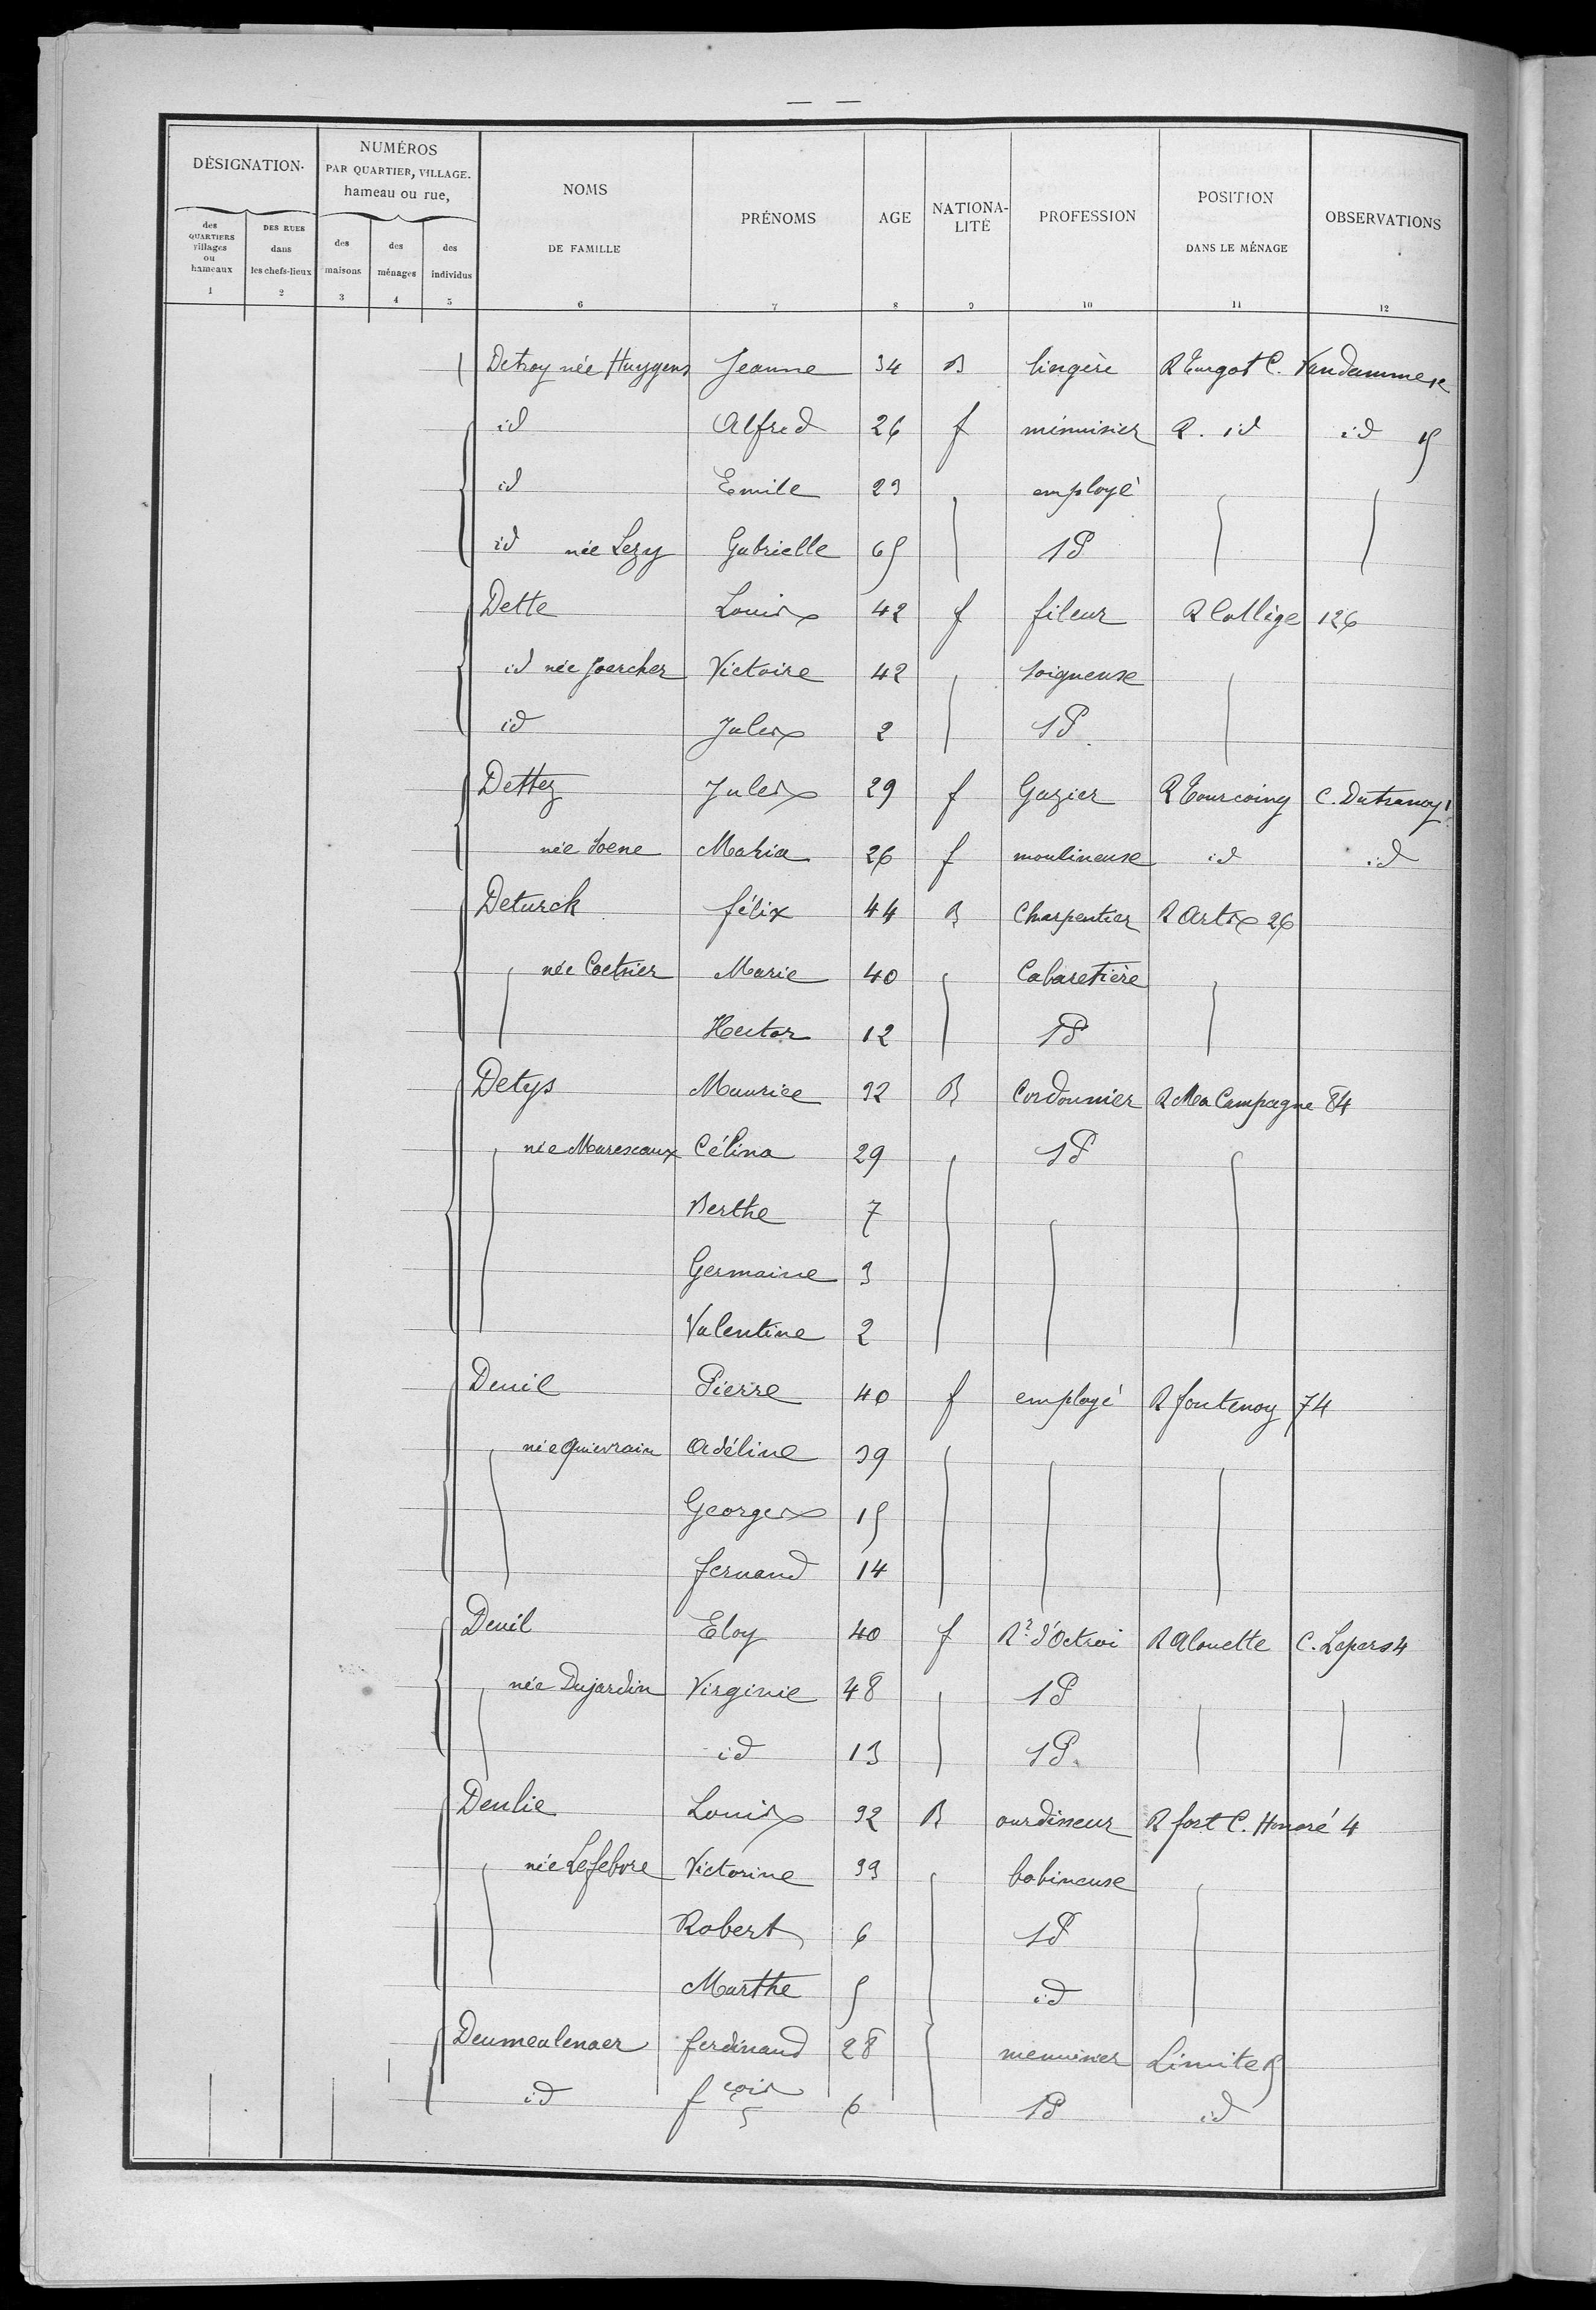 DÉSIGNATION.
NUMÉROS
PAR QUARTIER, VILLAGE.
hameau ou rue,
des QUARTIERS villages ou hameaux
DES RUES dans les chefs-lieux
des maisons
des ménages
des individus
NOMS
DE FAMILLE
PRÉNOMS
AGE
NATIONA-
LITÉ
PROFESSION
POSITION
DANS LE MÉNAGE
OBSERVATIONS
1 2 3 4 5 6 7 8 9 10 11 12
Detroy née Huygens Jeanne 34 B lingère R Turgot C. Vandamme
id Alfred 26 f menuisier R. id id 15
id Emile 23 employé
id née Lezy Gabrielle 65 SP
Dette Louis 42 f fileur R Collège 126
id née Victoire 42 soigneuse
id Jules 2 SP
Dettez Jules 29 f Gazier R Tourcoing C. Dutranoy 1
née Soene Maria 26 f moulineuse id id
Deturck félix 44 B Charpentier R Arts 26
née Marie 40 Cabaretière
Hector 12 SP
Detys Maurice 32 B Cordonnier R Ma Campagne 84
née Marescaux Célina 29 SP
Berthe 7
Germaine 3
Valentine 2
Deuil Pierre 40 f employé R fontenoy 74
née Quievrain Adéline 39
Georges 15
fernand 14
Deuil Eloy 40 f Rr d'Octroi R Alouette C. Lepers 4
née Dujardin Virginie 48 SP
id 13 SP
Deulie Louis 32 B ourdisseur R fort C. Honoré 4
née Lefebvre Victorine 33 bobineuse
Robert 6 SP
Marthe 5 id
Deumeulenaer ferdinand 28 menuisier Limite B
id fçois 6 SP id